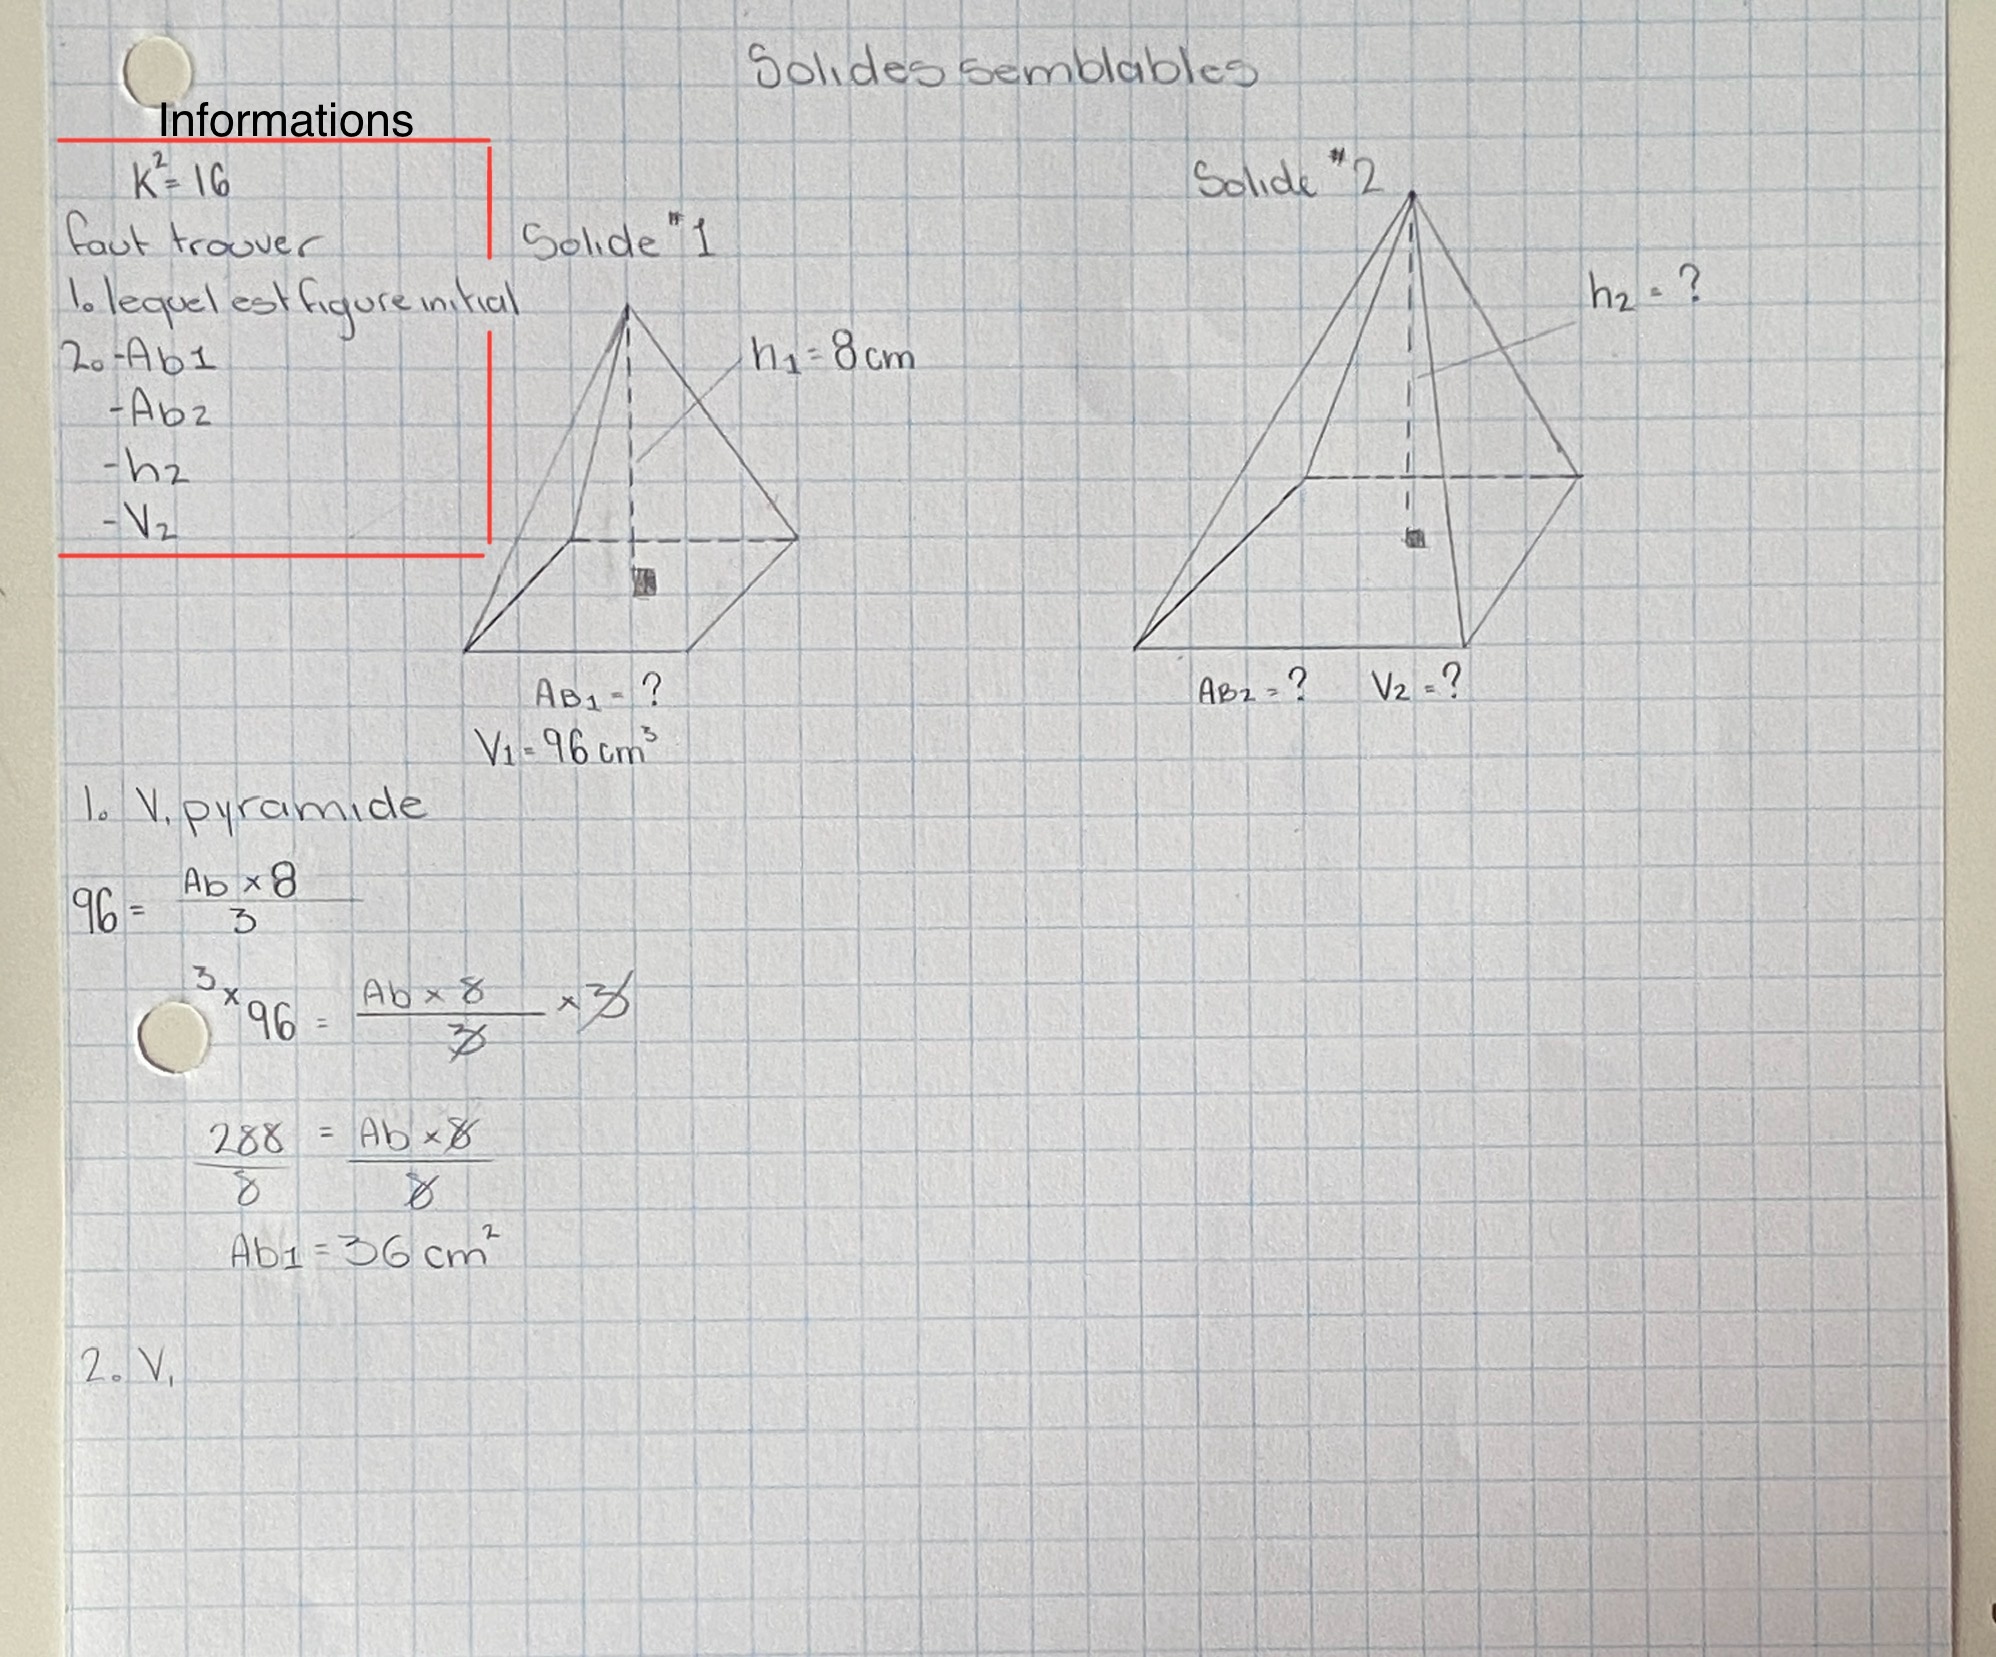 Solides semblables
Informations
K²= 16
faut trouver
1. lequel est figure initial
2. -Ab1
-Ab2
-h2
-V2
Solide #1
h1 = 8 cm
AB1 = ?
V1 = 96 cm³
Solide #2
h2 = ?
AB2 = ? V2 = ?
1. V, pyramide
96 = Ab × 8
3
3 × 96 = Ab × 8 × 3
3
288 = Ab × 8
8 8
Ab1 = 36 cm²
2. V,